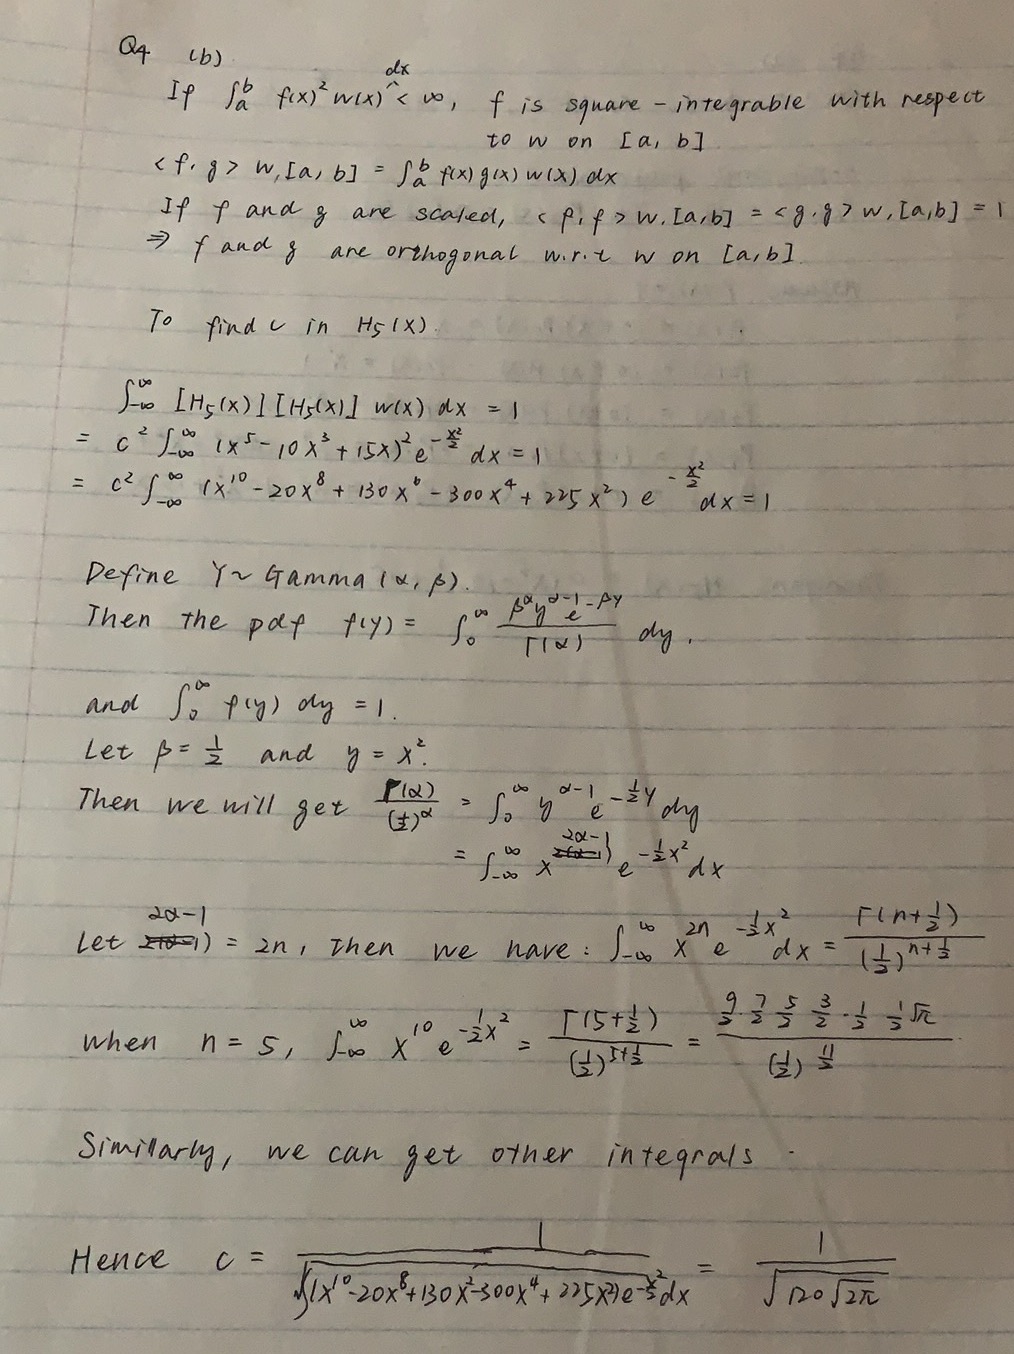 Q4 (b)
If ∫_a^b f(x)² w(x) dx < ∞, f is square-integrable with respect
to w on [a, b]
<f, g> w,[a, b] = ∫_a^b f(x) g(x) w(x) dx
If f and g are scaled, <f, f> w,[a,b] = <g, g> w,[a,b] = 1
⇒ f and g are orthogonal w.r.t w on [a,b].
To find c in H₅(x).
∫_{-∞}^{∞} [H₅(x)][H₅(x)] w(x) dx = 1
= c² ∫_{-∞}^{∞} (x⁵ - 10x³ + 15x)² e^{-x²/2} dx = 1
= c² ∫_{-∞}^{∞} (x¹⁰ - 20x⁸ + 130x⁶ - 300x⁴ + 225x²) e^{-x²/2} dx = 1
Define Y ~ Gamma (α, β).
Then the pdf f(y) = ∫_0^∞ β^α y^{α-1} e^{-βy} / Γ(α) dy.
and ∫_0^∞ f(y) dy = 1.
Let β = 1/2 and y = x².
Then we will get Γ(α) / (1/2)^α = ∫_0^∞ y^{α-1} e^{-1/2 y} dy
= ∫_{-∞}^{∞} x^{2α-1} e^{-1/2 x²} dx
Let 2α-1 = 2n, Then we have: ∫_{-∞}^{∞} x^{2n} e^{-1/2 x²} dx = Γ(n+1/2) / (1/2)^{n+1/2}
when n = 5, ∫_{-∞}^{∞} x¹⁰ e^{-1/2 x²} = Γ(5+1/2) / (1/2)^{5+1/2} = 9/2 · 7/2 · 5/2 · 3/2 · 1/2 · 1/2 √π / (1/2)^{11/2}
Similarly, we can get other integrals.
Hence c = 1 / √∫(x¹⁰ - 20x⁸ + 130x² - 300x⁴ + 225x²) e^{-x²/2} dx = 1 / √(120√2π)